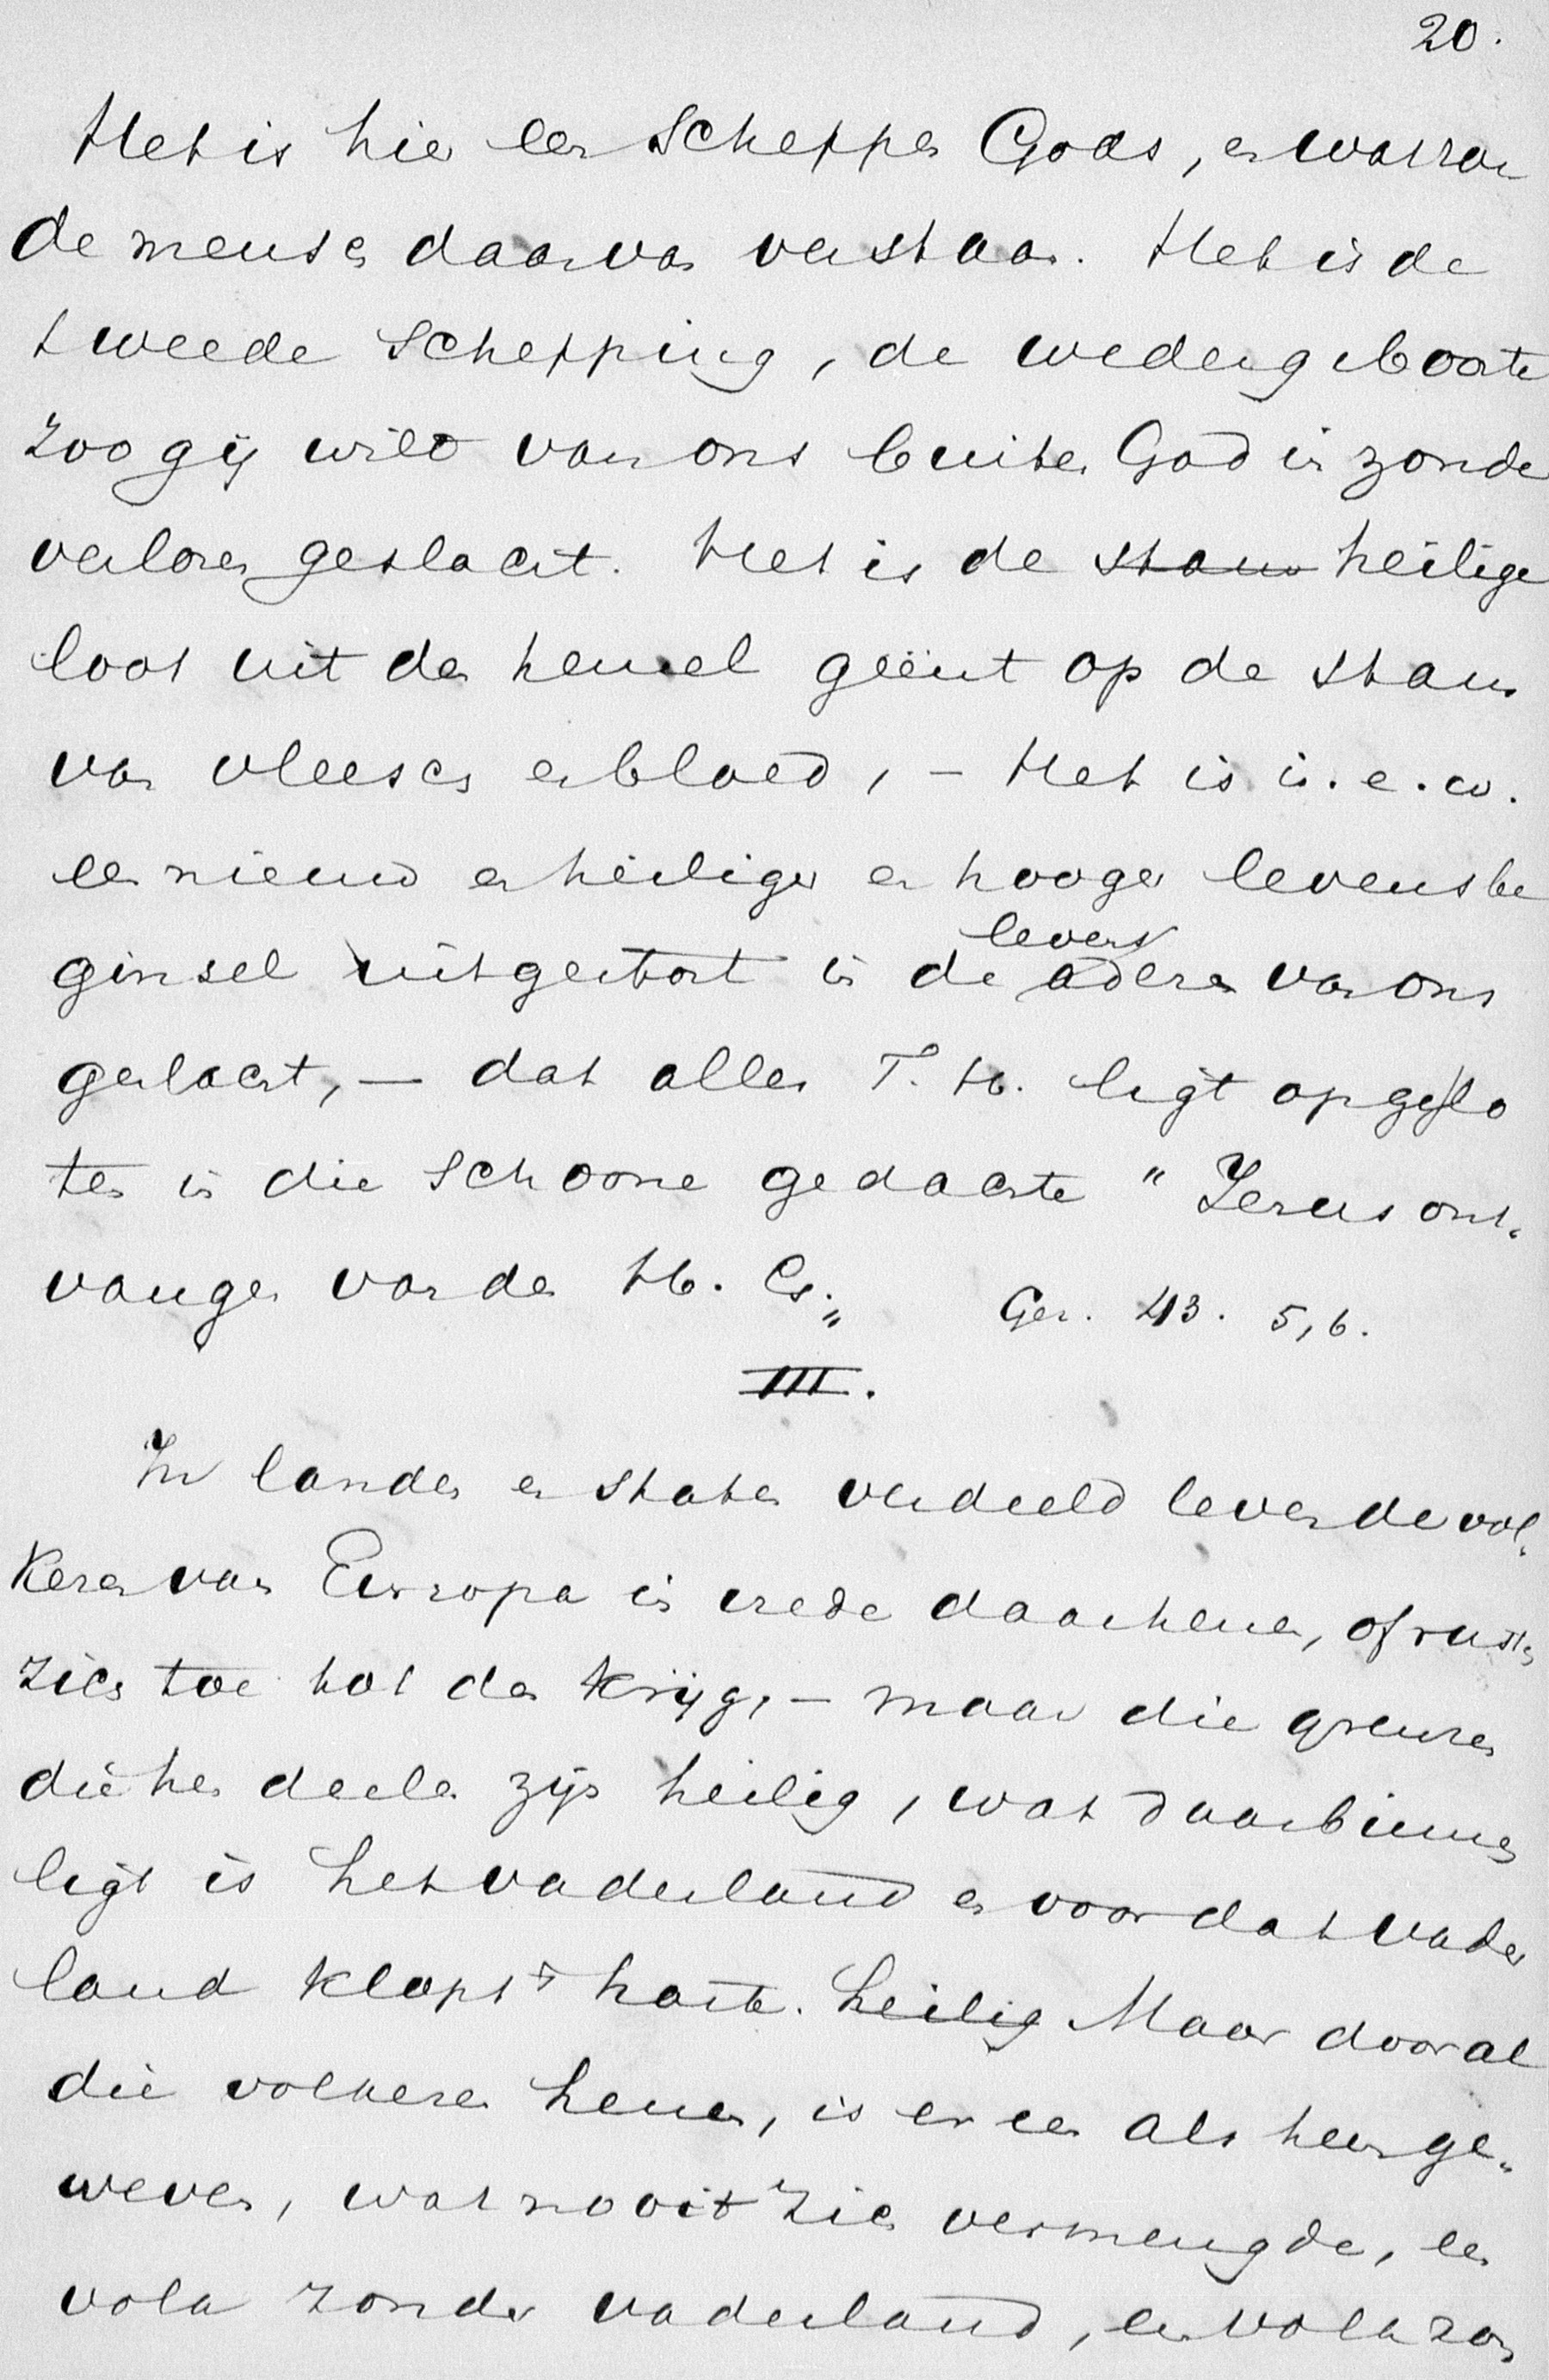 20.
Het is hier een Scheppen Gods, en wat zou
de mensch daarvan verstaan. Het is de
tweede Schepping, de wedergeboorte
zoo gij wilt van ons buiten God in zonde
verloren geslacht. Het is de stam heilige
loot uit den hemel geënt op de stam
van vleesch en bloed, – Het is i. e. w.
een nieuw en heiliger en hooger levensbe
ginsel uitgestort in de levens aderen van ons
geslacht, — dat alles T. H. ligt opgeslo
ten in die schoone gedachte "Jezus ont-
vangen van den H. Gs." Gez. 43. 5,6.
III.
In landen en staten verdeeld leven de vol-
keren van Europa in vrede daarhenen, of rusten
zich toe tot den krijg, – maar die grenzen
die hen deelen zijn heilig, wat daarbinnen
ligt is het vaderland en voor dat vader
land klopt 't harte. heilig Maar door al
die volkeren henen, is er een als heen ge-
weven, wat nooit zich vermengde, een
volk zonder vaderland, een volk zon